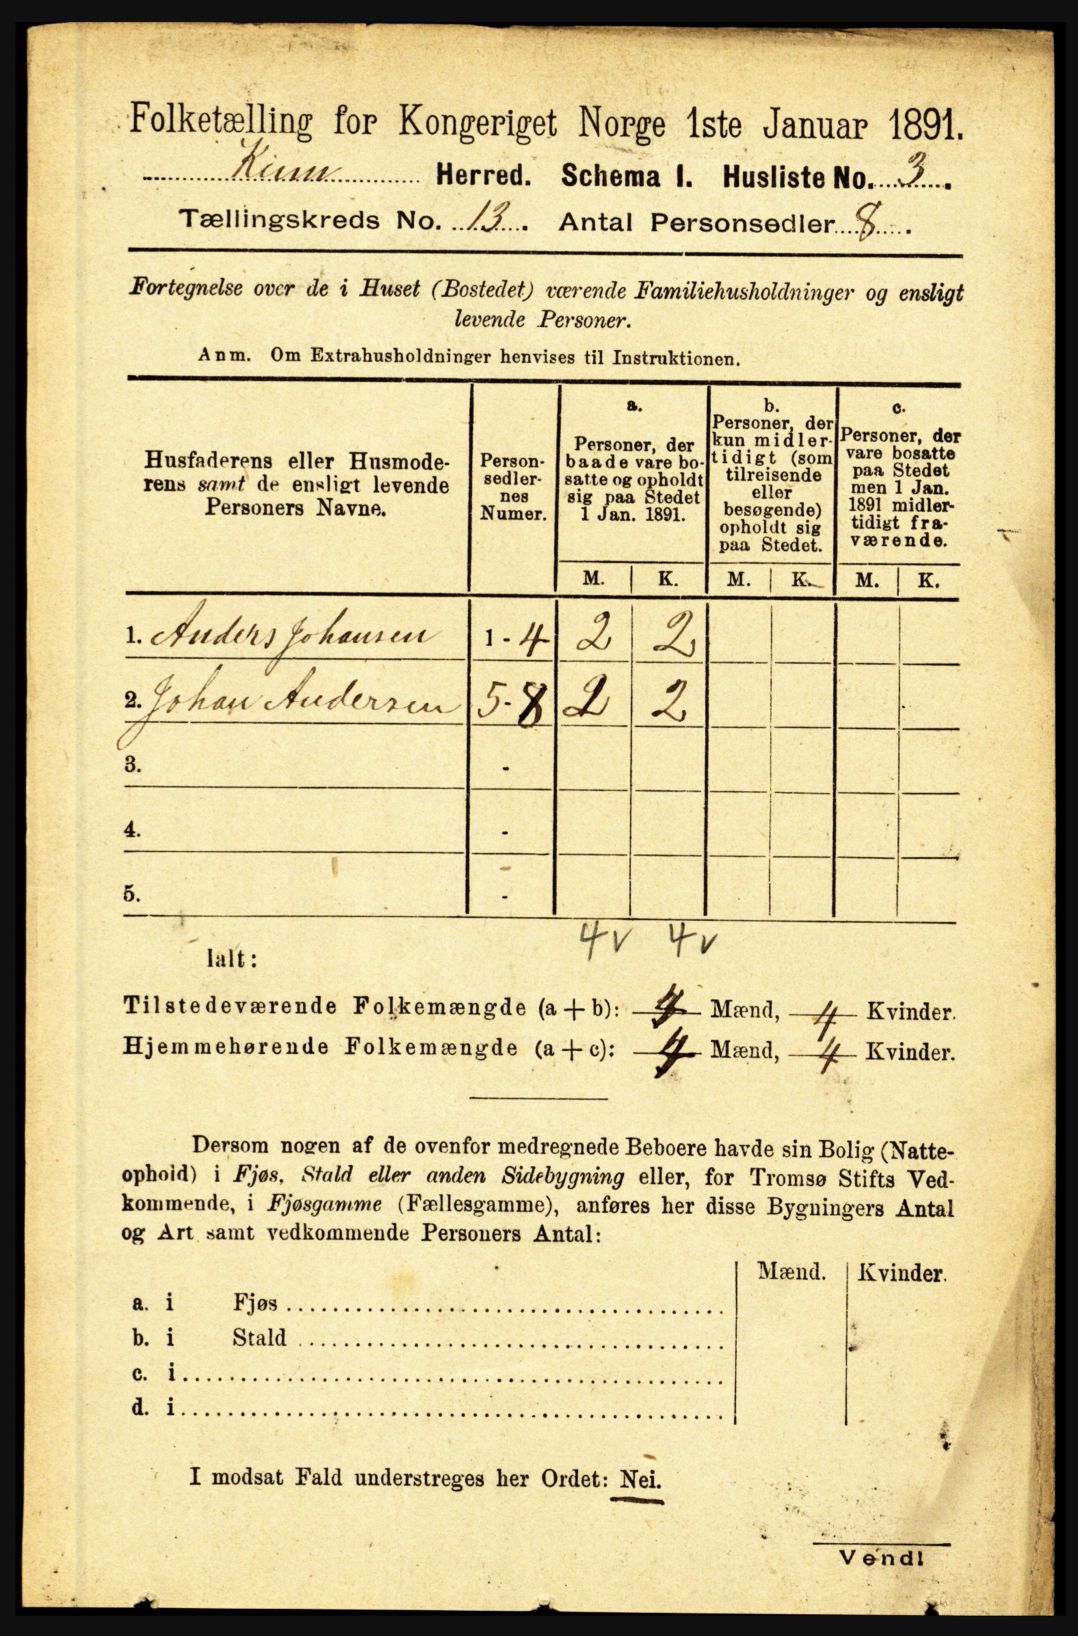 Folketælling for Kongeriget Norge 1ste Januar 1891.
Kinn Herred. Schema I. Husliste No. 3.
Tællingskreds No. 13. Antal Personsedler 8.
Fortegnelse over de i Huset (Bostedet) værende Familiehusholdninger og ensligt
levende Personer.
Anm. Om Extrahusholdninger henvises til Instruktionen.
Husfaderens eller Husmode-
rens samt de ensligt levende
Personers Navne.
Person-
sedler-
nes
Numer.
a.
Personer, der
baade vare bo-
satte og opholdt
sig paa Stedet
1 Jan. 1891.
b.
Personer, der
kun midler-
tidigt (som
tilreisende
eller
besøgende)
opholdt sig
paa Stedet.
c.
Personer, der
vare bosatte
paa Stedet
men 1 Jan.
1891 midler-
tidigt fra-
værende.
M. K. M. K. M. K.
1. Anders Johansen 1 - 4 2 2
2. Johan Andersen 5 - 8 2 2
3. -
4. -
5. -
4 v 4 v
Ialt:
Tilstedeværende Folkemængde (a + b): 4 Mænd, 4 Kvinder.
Hjemmehørende Folkemængde (a + c): 4 Mænd, 4 Kvinder.
Dersom nogen af de ovenfor medregnede Beboere havde sin Bolig (Natte-
ophold) i Fjøs, Stald eller anden Sidebygning eller, for Tromsø Stifts Ved-
kommende, i Fjøsgamme (Fællesgamme), anføres her disse Bygningers Antal
og Art samt vedkommende Personers Antal:
Mænd. Kvinder.
a. i Fjøs
b. i Stald
c. i
d. i
I modsat Fald understreges her Ordet: Nei.
Vend!